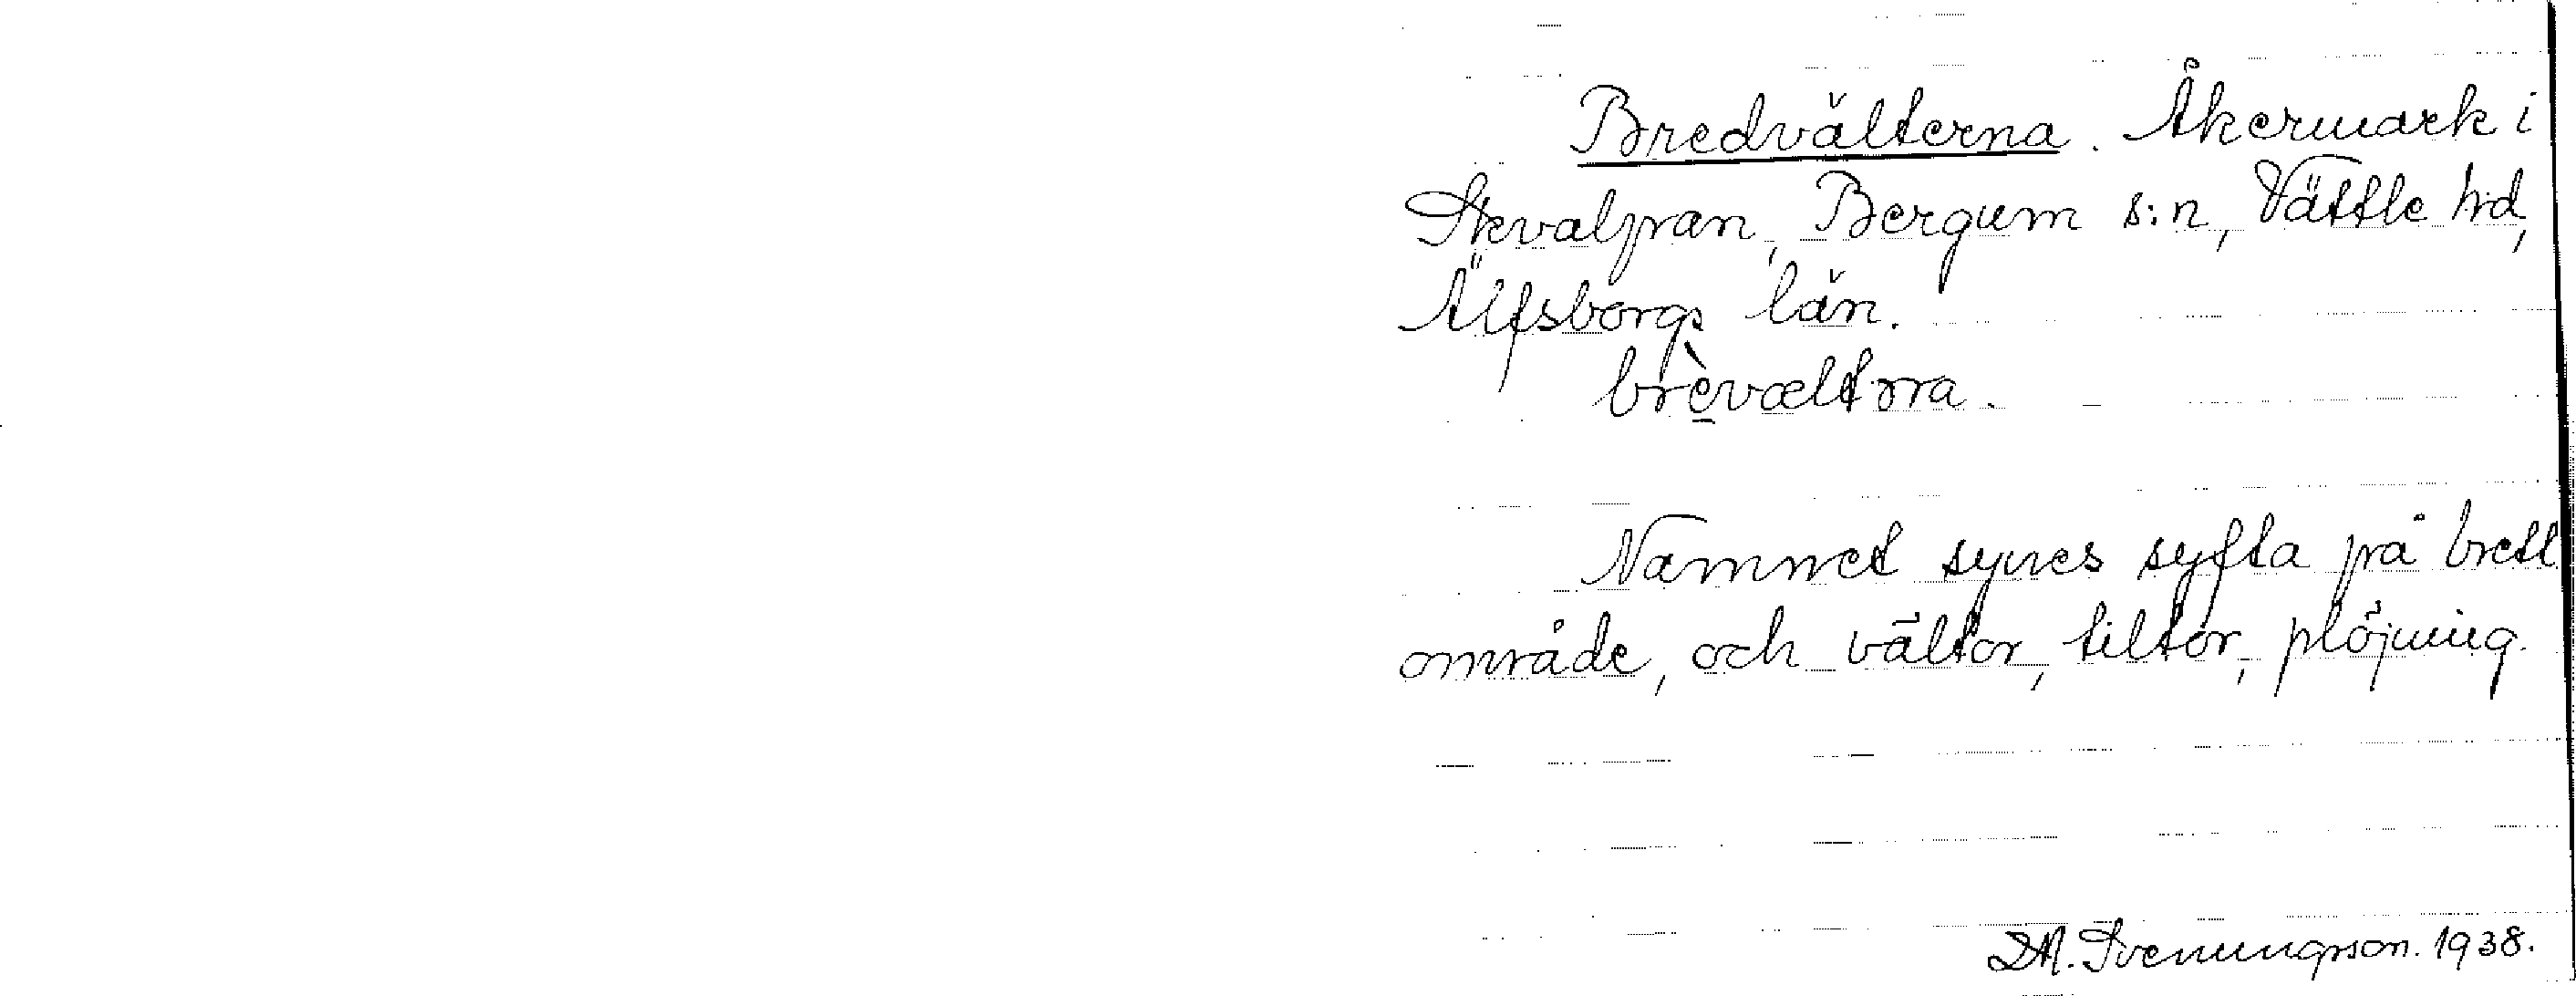 Bredvälterna. Åkermark i
Bergum s:n, Vättle hd,
Älfsborgs län.
brèvæltrra.
Namnet synes syfta på brett
område, och vältor, tiltor, plöjning.
D.A. Svenungsson. 1938.